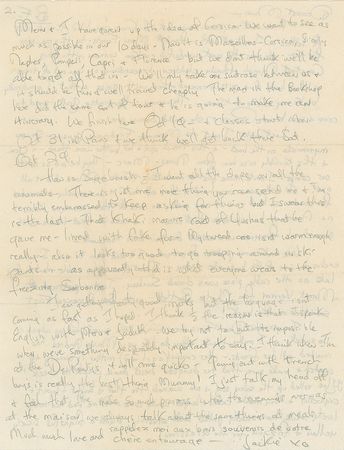 2.
Mem & I have given up the idea of Corsica. We want to see as
much as possible in our 10 days - Now it is Marseilles - Corsica, Sicily
Naples, Pompeii, Capri, & Florence - but we don't think we'll be
able to get all that in - We'll only take one suitcase between us &
it should be fun & well travel cheaply. The man in the Bookshop
here did the same sort of tour & he is going to make me an
itinerary. We finish here Oct 18 - & classes start
31 in Paris & we think we'll get back there Sat.
Oct 29
How is
animals. There is just one more thing you can send me & I'm
terribly embarrassed to keep asking for things but I swear this
is the last - That Khaki coat of Yushas that he
gave me - lined with fake fur - My tweed one isnt warm enough
really - also it looks too good to go tromping around in
apparently this is what everyone wears to the
freezing Sorbonne
I've gotten pretty good marks but the language isnt
coming as fast as I hoped I think the reason is that I speak
English with Mem & Judith - we try not to but its impossible
when we've something desperately important to say. I think when I'm
at the De Rentys it will come quicker - Going out with French
boys is really the best thing Mummy! I just talk my head off
& feel that I've made so much progress when the evening
at the maison we always talk about the same things at meals
Much much love and rappelez moi aux bons souvenirs de votre
chere entourage - Jackie XO